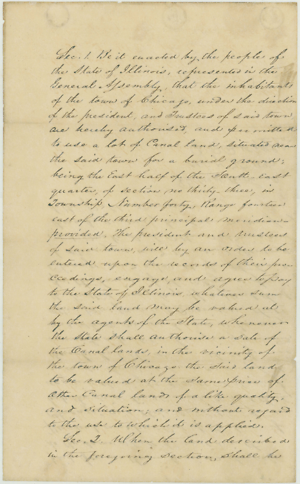 Sec. 1. Be it enacted by the people of
the State of Illinois, represented in the
General Assembly, that the inhabitants
of the town of Chicago, under the direction
of the president, and Trustees of said town
are hereby authorised, and permitted
to use a lot of Canal Land, situated near
the said town for a burial ground:
being the East half of the South-east
quarter, of section no thirty three, in
Township Number forty, Range fourteen
east of the third principal meridian
provided. The president and trustees
of said town, will by an order to be
entered upon the records of their pro
ceedings, engage, and agree to pay
to the State of Illinois whatever sum
the said land may be valued at
by the agents of the State, whenever
the State shall authorise a sale of
the Canal lands in the vicinity of
the town of Chicago the said land
to be valued at the same price of
other Canal lands of a like quality,
and situation, and without regard
to the use to which it is applied.
Sec. 2. When the land described
in the foregoing section, shall be